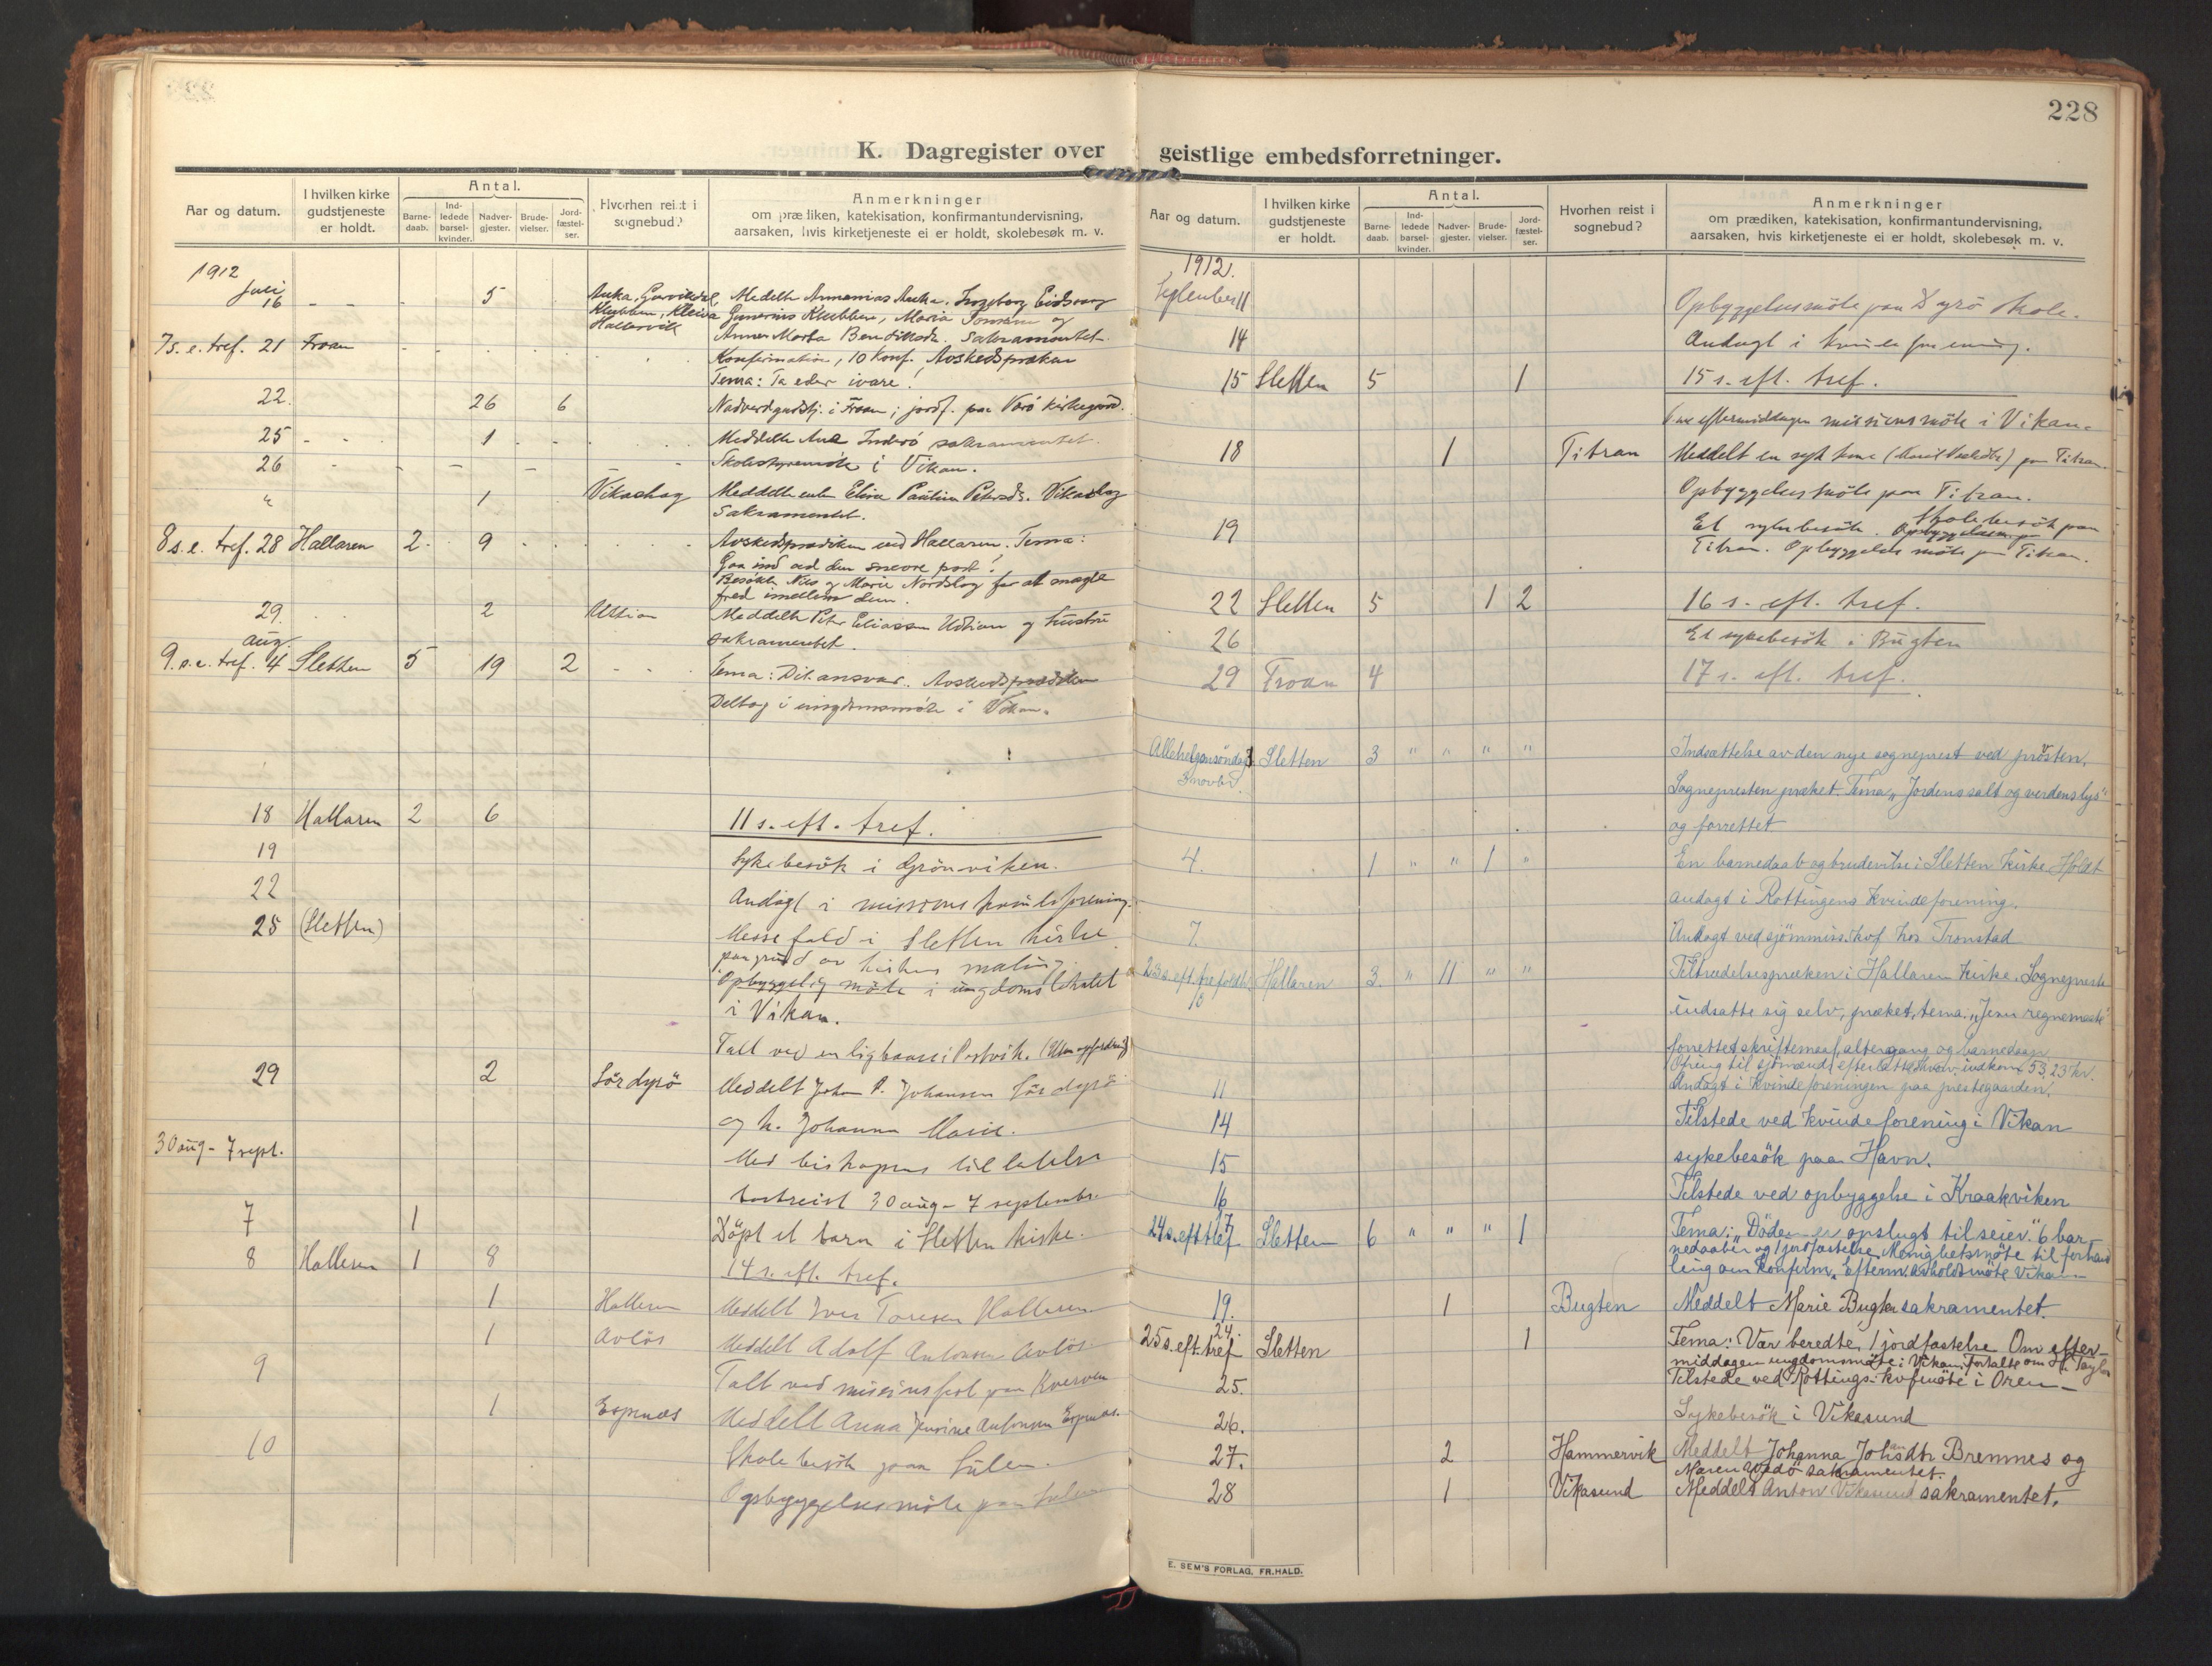 228
K. Dagregister over geistlige embedsforretninger.
Aar og datum.
I hvilken kirke gudstjeneste er holdt.
Antal.
Barne-daab.
Ind-ledede barsel-kvinder.
Nadver-gjester.
Brude-vielser.
Jord-fæstel-ser.
Hvorhen reist i sognebud?
Anmerkninger
om prædiken, katekisation, konfirmantundervisning,
aarsaken, hvis kirketjeneste ei er holdt, skolebesøk m. v.
1912
Juli
16 - - 5
Hallervik
sakramentet.
7 s. e. tref. 21 Froan
Konfirmation, 10 Konf. Avskedspræken
Tema: Ta eder ivare!
22. 26 6 Nadverdgudstj. i Froan; jordf. paa Sørø kirkegaard.
25 - 1 Meddelte sakramentet.
26 Skolestyremöte i Vikan.
" 1 Vikaskag Meddelte Vikaskag
Sakramentet.
8 s. e. tref. 28 Hallaren 2 9 Avskedsprædiken ved Hallaren. Tema:
Gaa ind ad den snevre port!
Besökte Nils og Marie Nordskag for at mægle
fred imellem dem.
29. 2 Uttian Meddelte Peter Eliassen Uttian og hustru
sakramentet.
aug.
9. s. e. tref. 4 Sletten 5 19 2 Tema: Dit ansvar. Avskedsprædiken
Deltog i ungdomsmöte i Vikan.
18 Hallaren 2 6 11 s. eft. tref.
19 Sykebesök i Grönviken.
22 Andagt i missionskvindeforening.
25 (Sletten) Messefald i Sletten kirke
paa grund av kirkens maling.
Opbyggelig möte i ungdomslokalet
i Vikan.
29 2 Sördyrö Meddelt Johan P. Johansen Sördyrö
og h. Johanna Marie.
30 aug - 7 sept. Med biskopens tilladelse
bortreist 30 aug - 7 september
7 1 Döpt et barn i Sletten kirke.
8 Hallaren 1 8 14 s. eft. tref.
1 Hallaren Meddelt Iver Hallaren
1 Avlös Meddelt Adolf Antonsen Avlös
9 Talt ved missionsfest paa Kverven
1 Espnes Meddelt Anna Antonsen Espnes.
10 Skolebesök paa Sulen.
Opbyggelsesmöte paa Sulen
Aar og datum.
I hvilken kirke gudstjeneste er holdt.
Antal.
Barne-daab.
Ind-ledede barsel-kvinder.
Nadver-gjester.
Brude-vielser.
Jord-fæstel-ser.
Hvorhen reist i sognebud?
Anmerkninger
om prædiken, katekisation, konfirmantundervisning,
aarsaken, hvis kirketjeneste ei er holdt, skolebesøk m. v.
1912.
September 11 Opbyggelsesmöte paa Dyrö skole.
14 Andagt i kvindeforening.
15 Sletten 5 1 15 s. eft. tref.
Om eftermiddagen missionsmöte i Vikan.
18 1 Titran Meddelt en syk paa Titran.
Opbyggelsesmöte paa Titran.
19 Et sykebesök. Skolebesök paa
Titran. Opbyggelsesmöte paa Titran.
22 Sletten 5 1 2 16 s. eft. tref.
26 Et sykebesök i Bugten
29 Froan 4 17 s. eft. tref.
Allehelgensöndag 3 Sletten 3 " " " " Indsættelse av den nye sogneprest ved prosten.
3 novbr. Sognepresten præket. Tema „Jordens salt og verdens lys"
og forrettet
4. 1 " " 1 " En barnedaab og brudevielse i Sletten kirke. Holdt
andagt i Rottingens kvindeforening.
7. Andagt ved sjömmiss.kvf. hos Tronstad
23 s. eft. trefoldh. Hallaren 3. " 11 " " Tiltrædelsespræken i Hallaren kirke. Sognepresten
10 indsatte sig selv, præket, tema: „Jesu regnemaate"
forrettet skriftemaal, altergang og barnedaap.
Ofring til sjömænds efterlatte, indkom 53,23 kr.
11 Andagt i kvindeforeningen paa prestegaarden.
14 Tilstede ved kvindeforening i Vikan
15 sykebesök paa Havn.
16 Tilstede ved opbyggelse i Kraakviken
17
24 s. eft. tref Sletten 6 " " " 1 Tema: „Döden er opslugt til seier." 6 bar
nedaaber og 1 jordfæstelse. Menighetsmöte til forhand
ling om konfirm. Efterm. avholdsmöte Vikan
19. 1 Bugten Meddelt Marie Bugten sakramentet.
24.
25 s. eft. tref Sletten 1 Tema: Vær beredte, 1 jordfæstelse Om efter-
middagen ungdomsmöte i Vikan. Fortalte om H. Taylor
25. Tilstede ved Rottings. kvfmöte i Oren -
26. Sykebesök i Vikasund
27. 2 Hammervik Meddelt Johanna Johsdtr Bremnes og
Maren sakramentet.
28 1 Vikasund Meddelt Anton Vikasund sakramentet.
E. SEM'S FORLAG. FR.HALD.